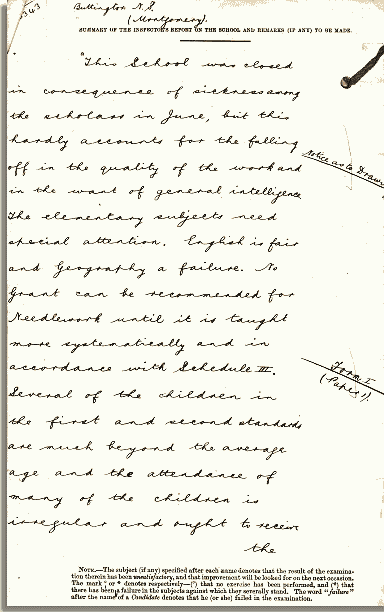 343
Buttington N.S.
(Montgomery).
SUMMARY OF THE INSPECTOR'S REPORT ON THE SCHOOL AND REMARKS (IF ANY) TO BE MADE.
"This School was closed
in consequence of sickness among
the scholars in June, but this
hardly accounts for the falling
off in the quality of the work and
in the want of general intelligence
The elementary subjects need
special attention. English is fair
and Geography a failure. No
Grant can be recommended for
Needlework until it is taught
more systematically and in
accordance with Schedule III.
Several of the children in
the first and second standards
are much beyond the average
age and the attendance of
many of the children is
irregular and ought to receive
the
Notice as to Draw
Form I
(Paper 1).
NOTE.—The subject (if any) specified after each name denotes that the result of the examina-
tion therein has been unsatisfactory, and that improvement will be looked for on the next occasion.
The mark " or * denotes respectively—(") that no exercise has been performed, and (*) that
there has been a failure in the subjects against which they severally stand. The word "failure"
after the name of a Candidate denotes that he (or she) failed in the examination.